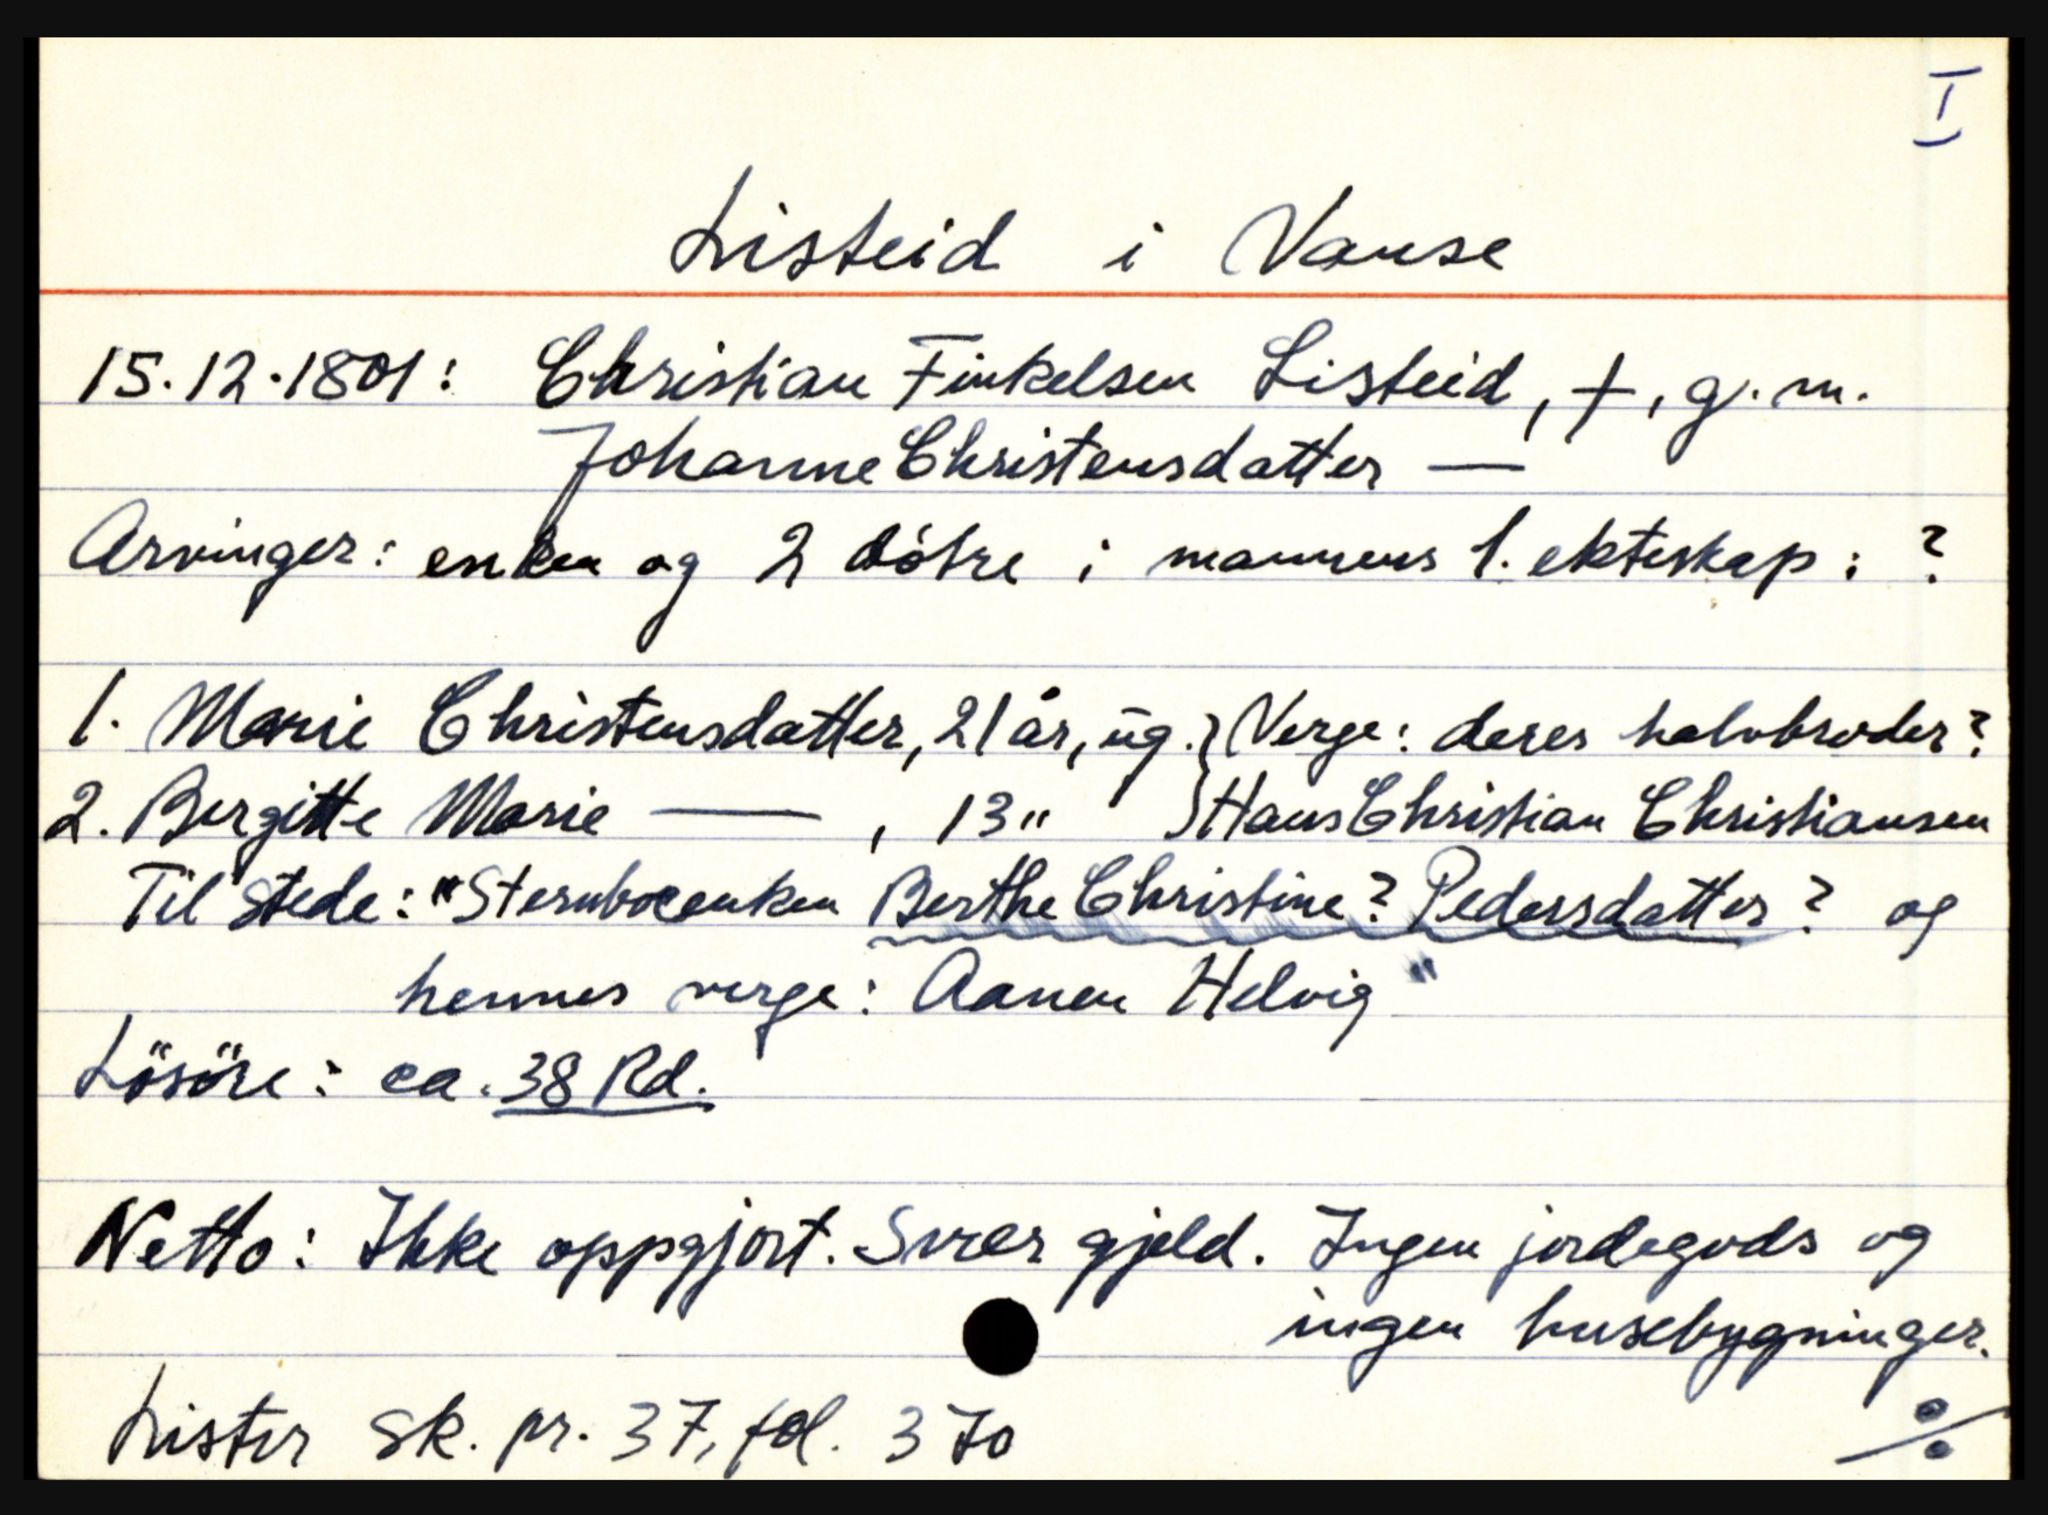 I
Listeid i Vanse
15.12.1801: Christian Finkelsen Listeid, †, g. m.
Johanne Christensdatter —
Arvinger: enken og 2 døtre i mannens 1. ekteskap: ?
1. Marie Christensdatter, 21 år, ug. } Verge: deres halvbroder?
2. Birgitte Marie —— , 13 " } Hans Christian Christiansen
Til stede: "Sternboeenken Berthe Christine? Pedersdatter? og
hennes verge: Aanen Helvig"
Lösöre: ca. 38 Rd.
Netto: Ikke oppgjort. Svær gjeld. Ingen jordegods og
ingen husebygninger.
Lister sk. pr. 37, fol. 370
%